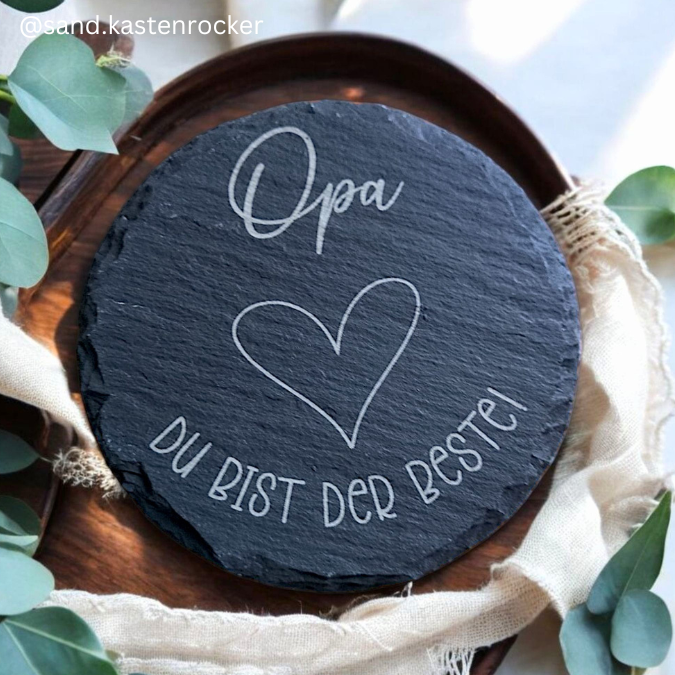 @sand.kastenrocker
Opa
DU BIST DER BESTE!